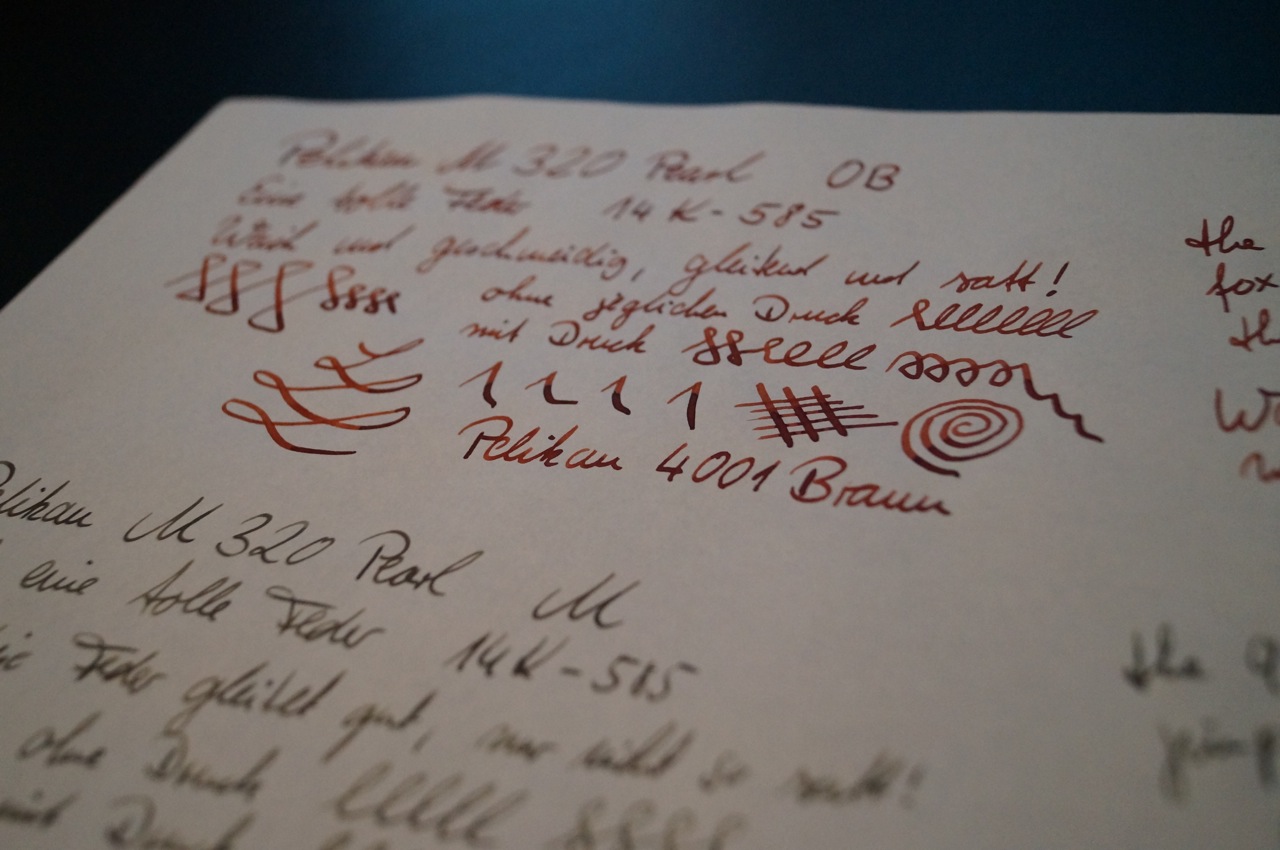 Pelikan M 320 Pearl OB
Eine tolle Feder 14 K - 585
Weich und geschmeidig, gleitend und satt!
ohne jeglichen Druck
mit Druck
Pelikan 4001 Braun
the
fox
th
W
Pelikan M 320 Pearl M
eine tolle Feder 14K - 585
Feder gleitet gut, nur nicht so satt!
ohne Druck
mit Druck
the q